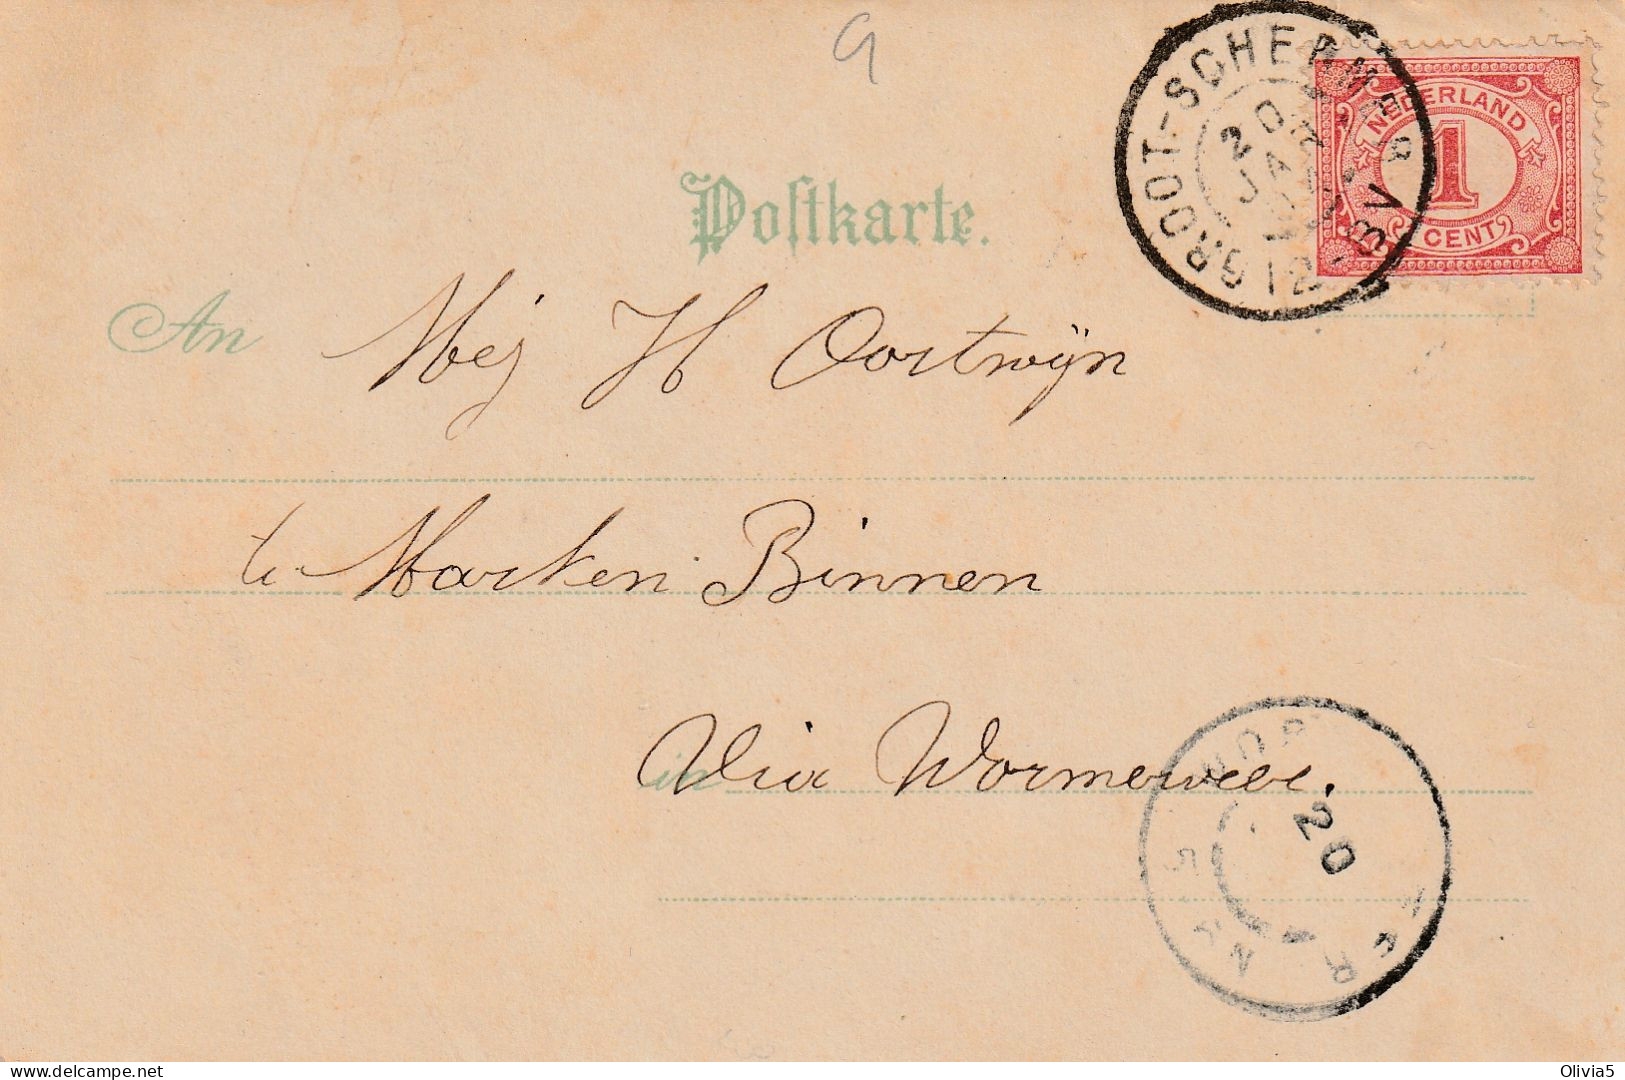 9
GROOT-SCHERMER
20 JAN
12-8V
NEDERLAND
1
CENT
Postkarte.
An Mej H Oortwijn
te Marken Binnen
in Via Wormerveer.
20
delcampe.net
Olivia5